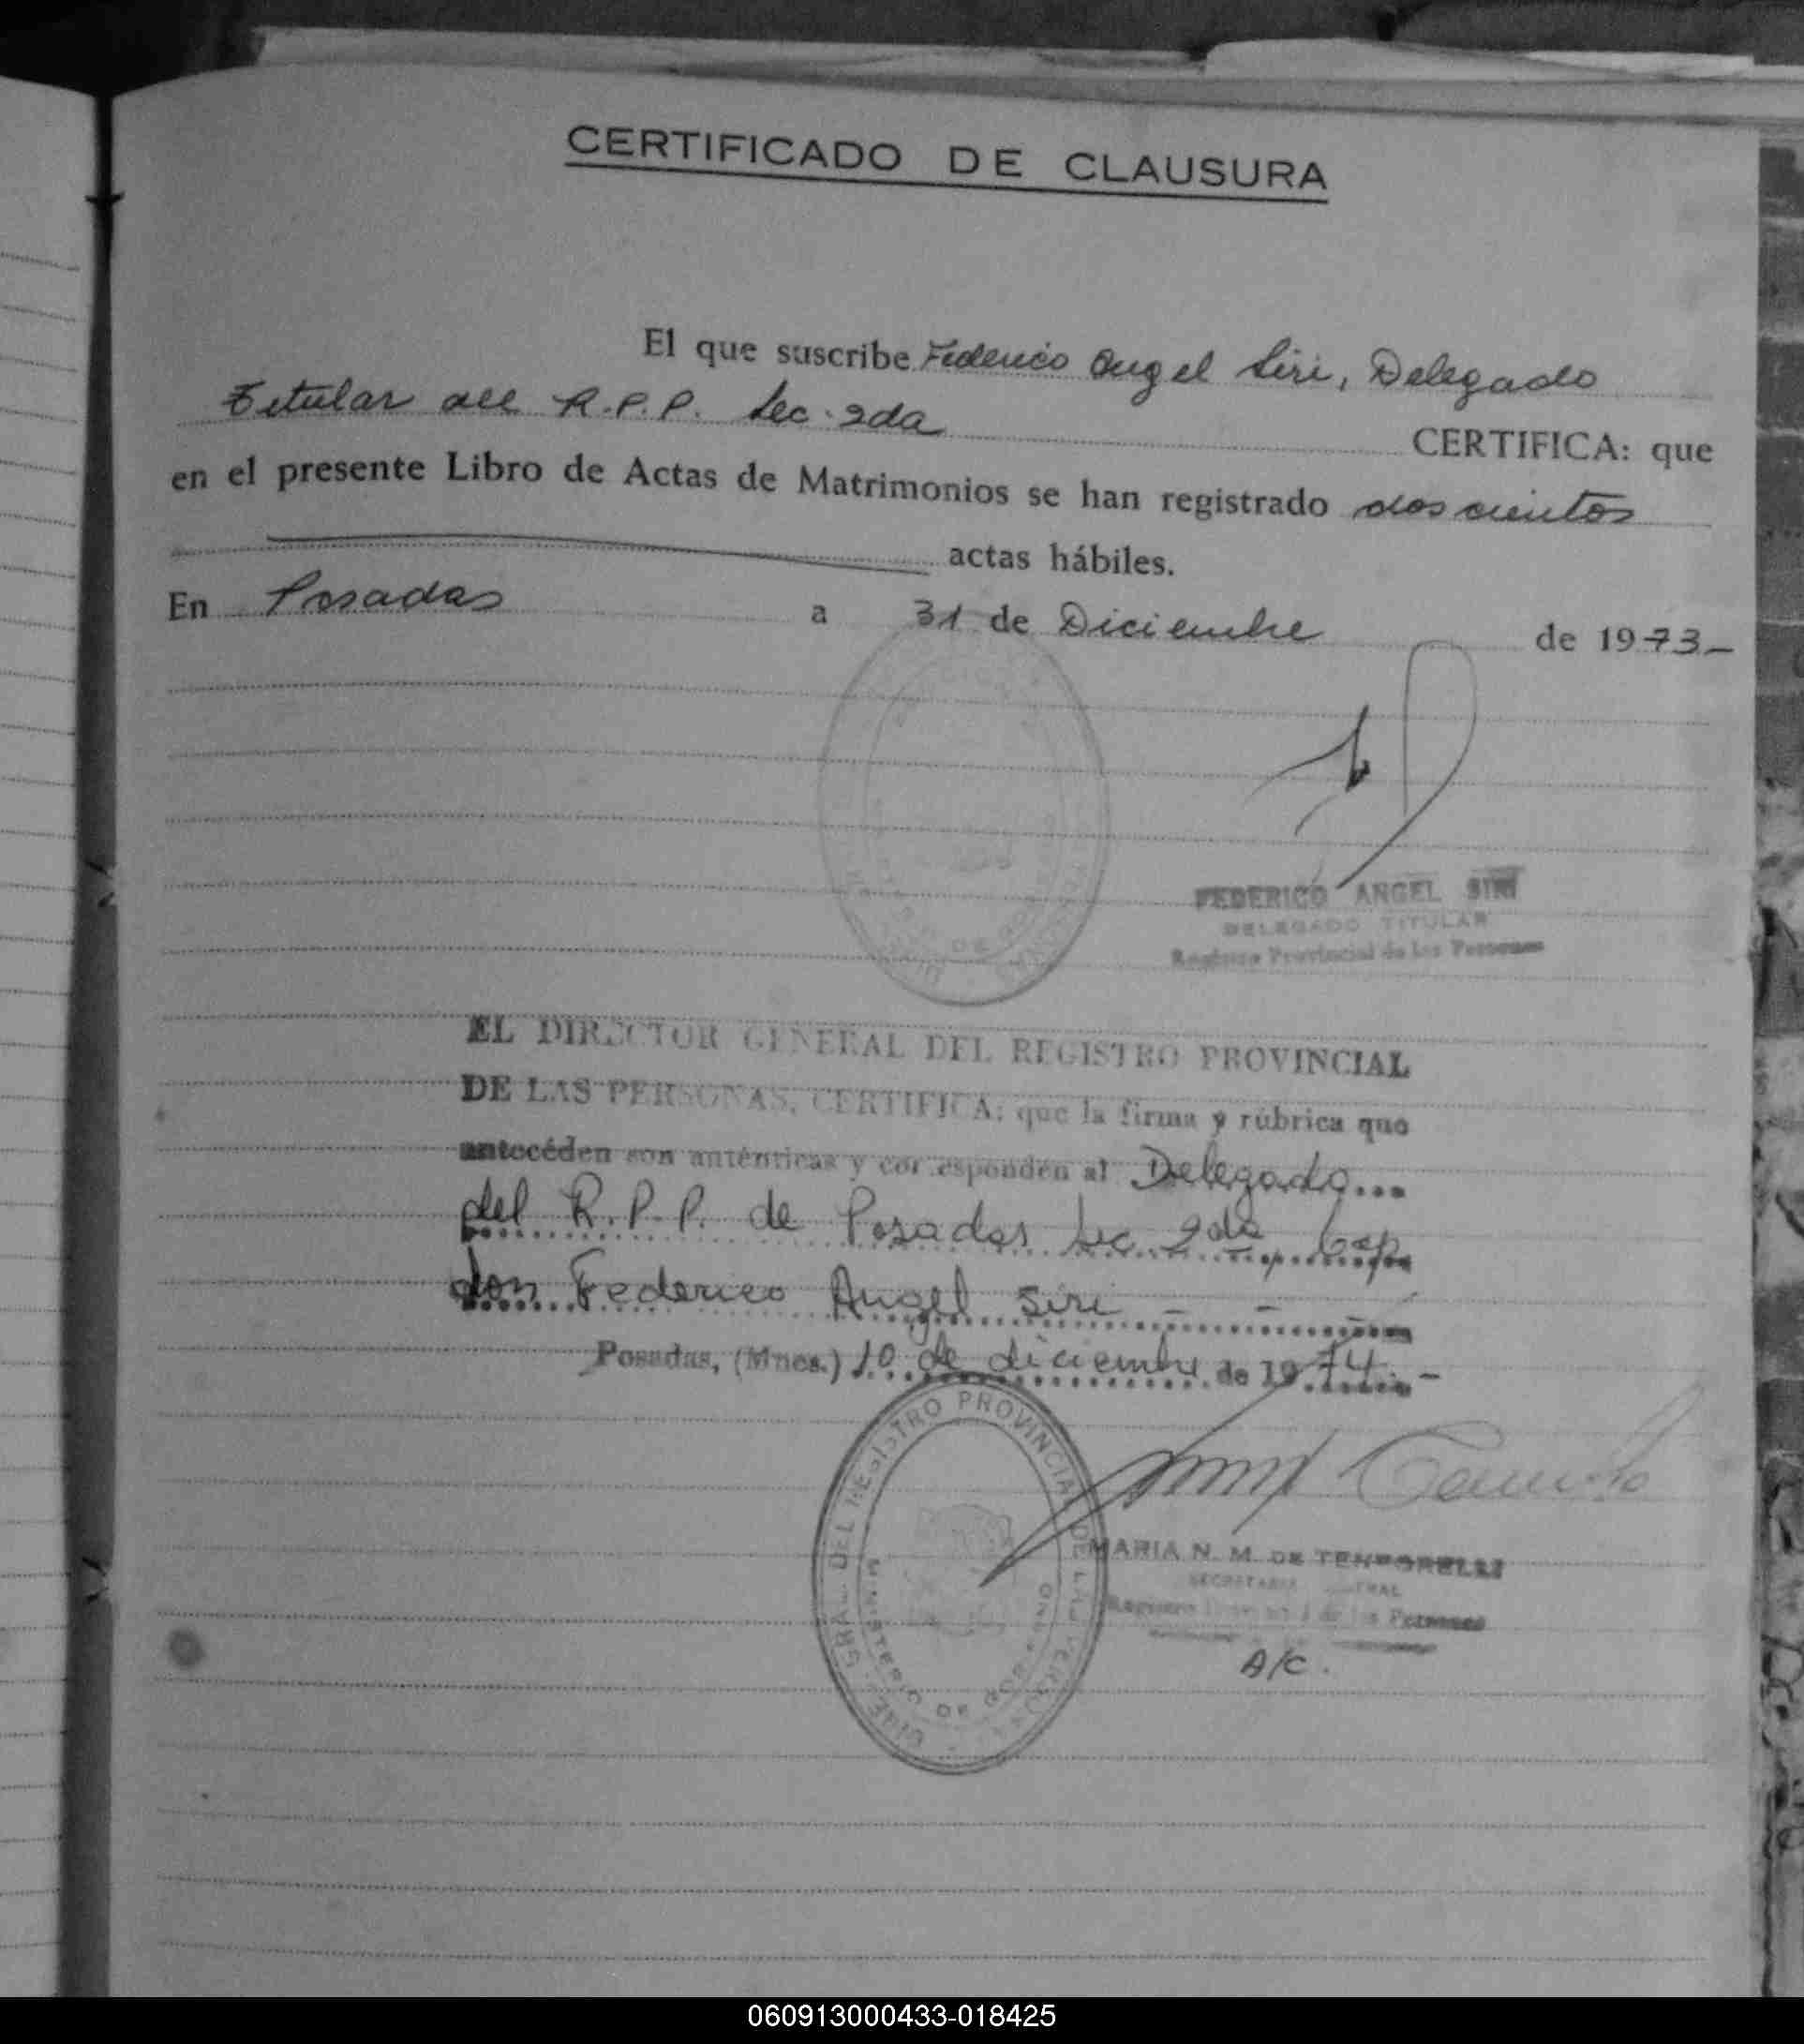 CERTIFICADO DE CLAUSURA
El que suscribe Federico Angel Siri, Delegado
Titular del R.P.P. Sec. 2da
CERTIFICA: que
en el presente Libro de Actas de Matrimonios se han registrado doscientos
actas hábiles.
En Posadas a 31 de Diciembre de 1973-
FEDERICO ANGEL SIRI
DELEGADO TITULAR
Registro Provincial de las Personas
EL DIRECTOR GENERAL DEL REGISTRO PROVINCIAL
DE LAS PERSONAS, CERTIFICA: que la firma y rúbrica que
antecéden son auténticas y corresponden al Delegado...
del R.P.P. de Posadas Sec 2da, Cap
don Federico Angel Siri - - -
Posadas, (Mnes.) 10 de diciembre de 1974.-
DIREC. GRAL. DEL REGISTRO PROVINCIAL DE LAS PERSONAS
MINISTERIO DE GOB.
MARIA N. M. DE
Registro de las Personas
A/C.
060913000433-018425